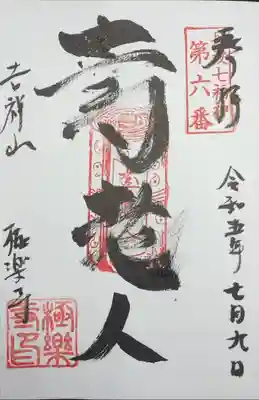 奉拝
七福
第六番
令和五年七月九日
寿老人
吉祥山
極楽寺
極樂寺印